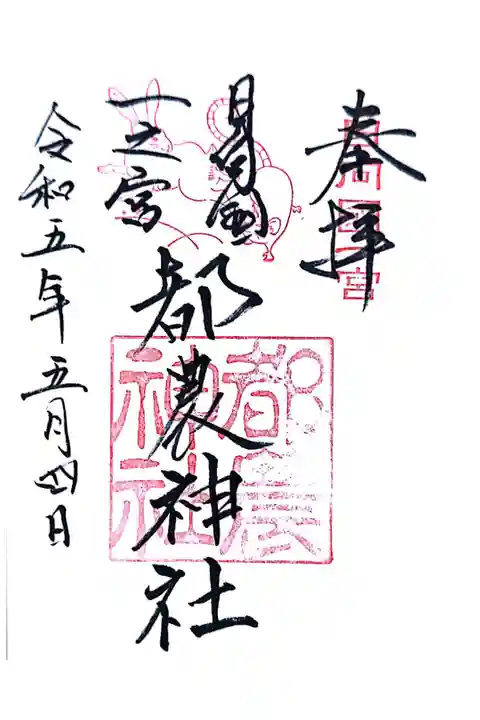 奉拝
日向国
一之宮
都農神社
令和五年五月四日
日向国一宮
都農神社